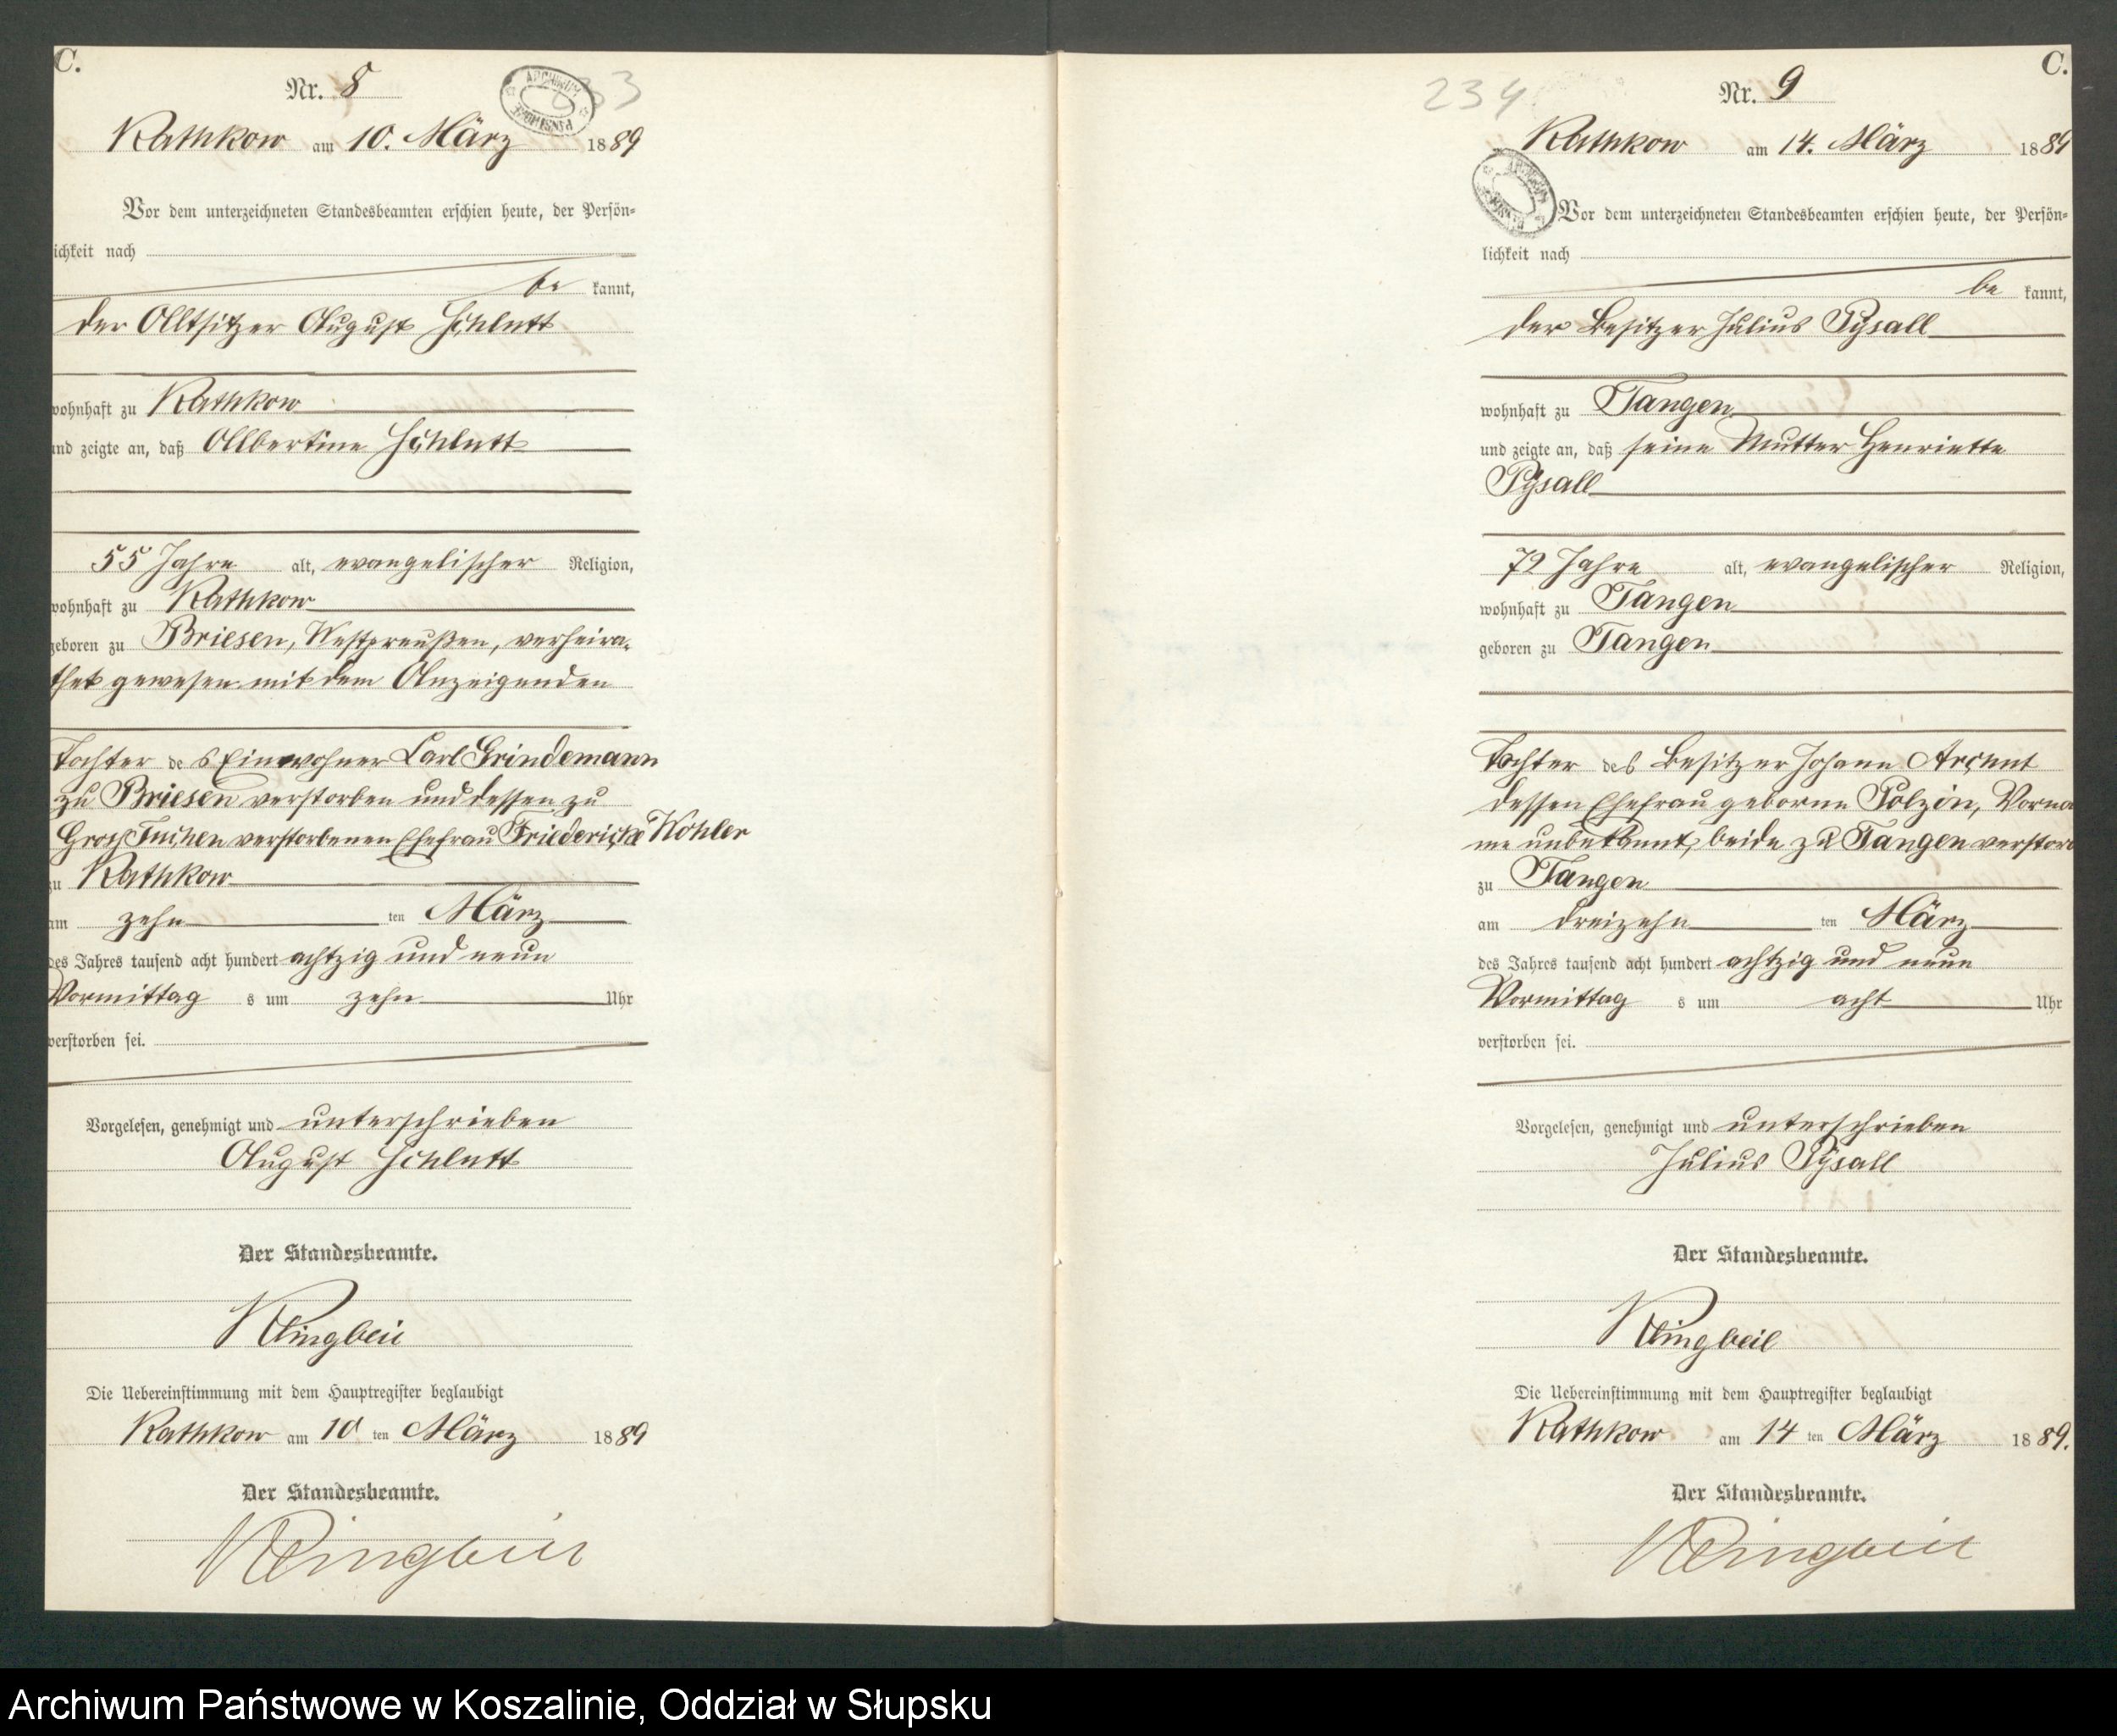 C.
Nr. 8
233
ARCHIWUM PAŃSTWOWE
Rathkow am 10. März 1889
Vor dem unterzeichneten Standesbeamten erschien heute, der Persön-
lichkeit nach
be kannt,
der Altsitzer August Schlutt
wohnhaft zu Rathkow
und zeigte an, daß Albertine Schlutt
55 Jahre alt, evangelischer Religion,
wohnhaft zu Rathkow
geboren zu Briesen, Westpreußen, verheira-
thet gewesen mit dem Anzeigenden
Tochter des Einwohner Carl Grindemann
zu Briesen verstorben und dessen zu
Groß Tuchen verstorbenen Ehefrau Friedericke Köhler
zu Rathkow
am zehn ten März
des Jahres tausend acht hundert achtzig und neun
Vormittag s um zehn Uhr
verstorben sei.
Vorgelesen, genehmigt und unterschrieben
August Schlutt
Der Standesbeamte.
Klingbeil
Die Uebereinstimmung mit dem Hauptregister beglaubigt
Rathkow am 10 ten März 1889
Der Standesbeamte.
Klingbeil
C.
234
Nr. 9
Rathkow am 14. März 1889
Vor dem unterzeichneten Standesbeamten erschien heute, der Persön-
lichkeit nach
be kannt,
der Besitzer Julius Pysall
wohnhaft zu Tangen
und zeigte an, daß seine Mutter Henriette
Pysall
72 Jahre alt, evangelischer Religion,
wohnhaft zu Tangen
geboren zu Tangen
Tochter des Besitzer Johann
dessen Ehefrau geborne Polzin, Vorna
me unbekannt, beide zu Tangen verstor
zu Tangen
am dreizehn ten März
des Jahres tausend acht hundert achtzig und neun
Vormittag s um acht Uhr
verstorben sei.
Vorgelesen, genehmigt und unterschrieben
Julius Pysall
Der Standesbeamte.
Klingbeil
Die Uebereinstimmung mit dem Hauptregister beglaubigt
Rathkow am 14 ten März 1889.
Der Standesbeamte.
Klingbeil
Archiwum Państwowe w Koszalinie, Oddział w Słupsku